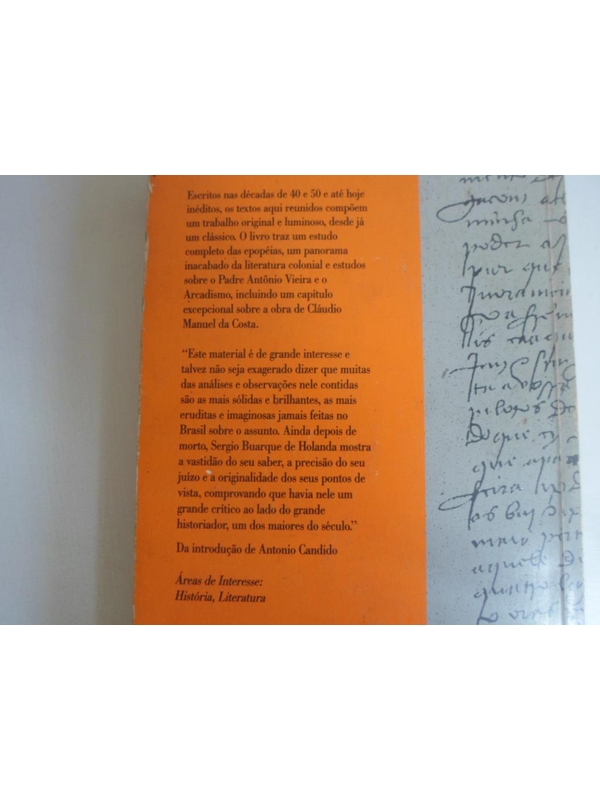 Escritos nas décadas de 40 e 50 e até hoje
inéditos, os textos aqui reunidos compõem
um trabalho original e luminoso, desde já
um clássico. O livro traz um estudo
completo das epopéias, um panorama
inacabado da literatura colonial e estudos
sobre o Padre Antônio Vieira e o
Arcadismo, incluindo um capítulo
excepcional sobre a obra de Cláudio
Manuel da Costa.
“Este material é de grande interesse e
talvez não seja exagerado dizer que muitas
das análises e observações nele contidas
são as mais sólidas e brilhantes, as mais
eruditas e imaginosas jamais feitas no
Brasil sobre o assunto. Ainda depois de
morto, Sergio Buarque de Holanda mostra
a vastidão do seu saber, a precisão do seu
juízo e a originalidade dos seus pontos de
vista, comprovando que havia nele um
grande crítico ao lado do grande
historiador, um dos maiores do século.”
Da introdução de Antonio Candido
Áreas de Interesse:
História, Literatura
minha
poder
por que
pilotos de
do que
que
mais
aquele